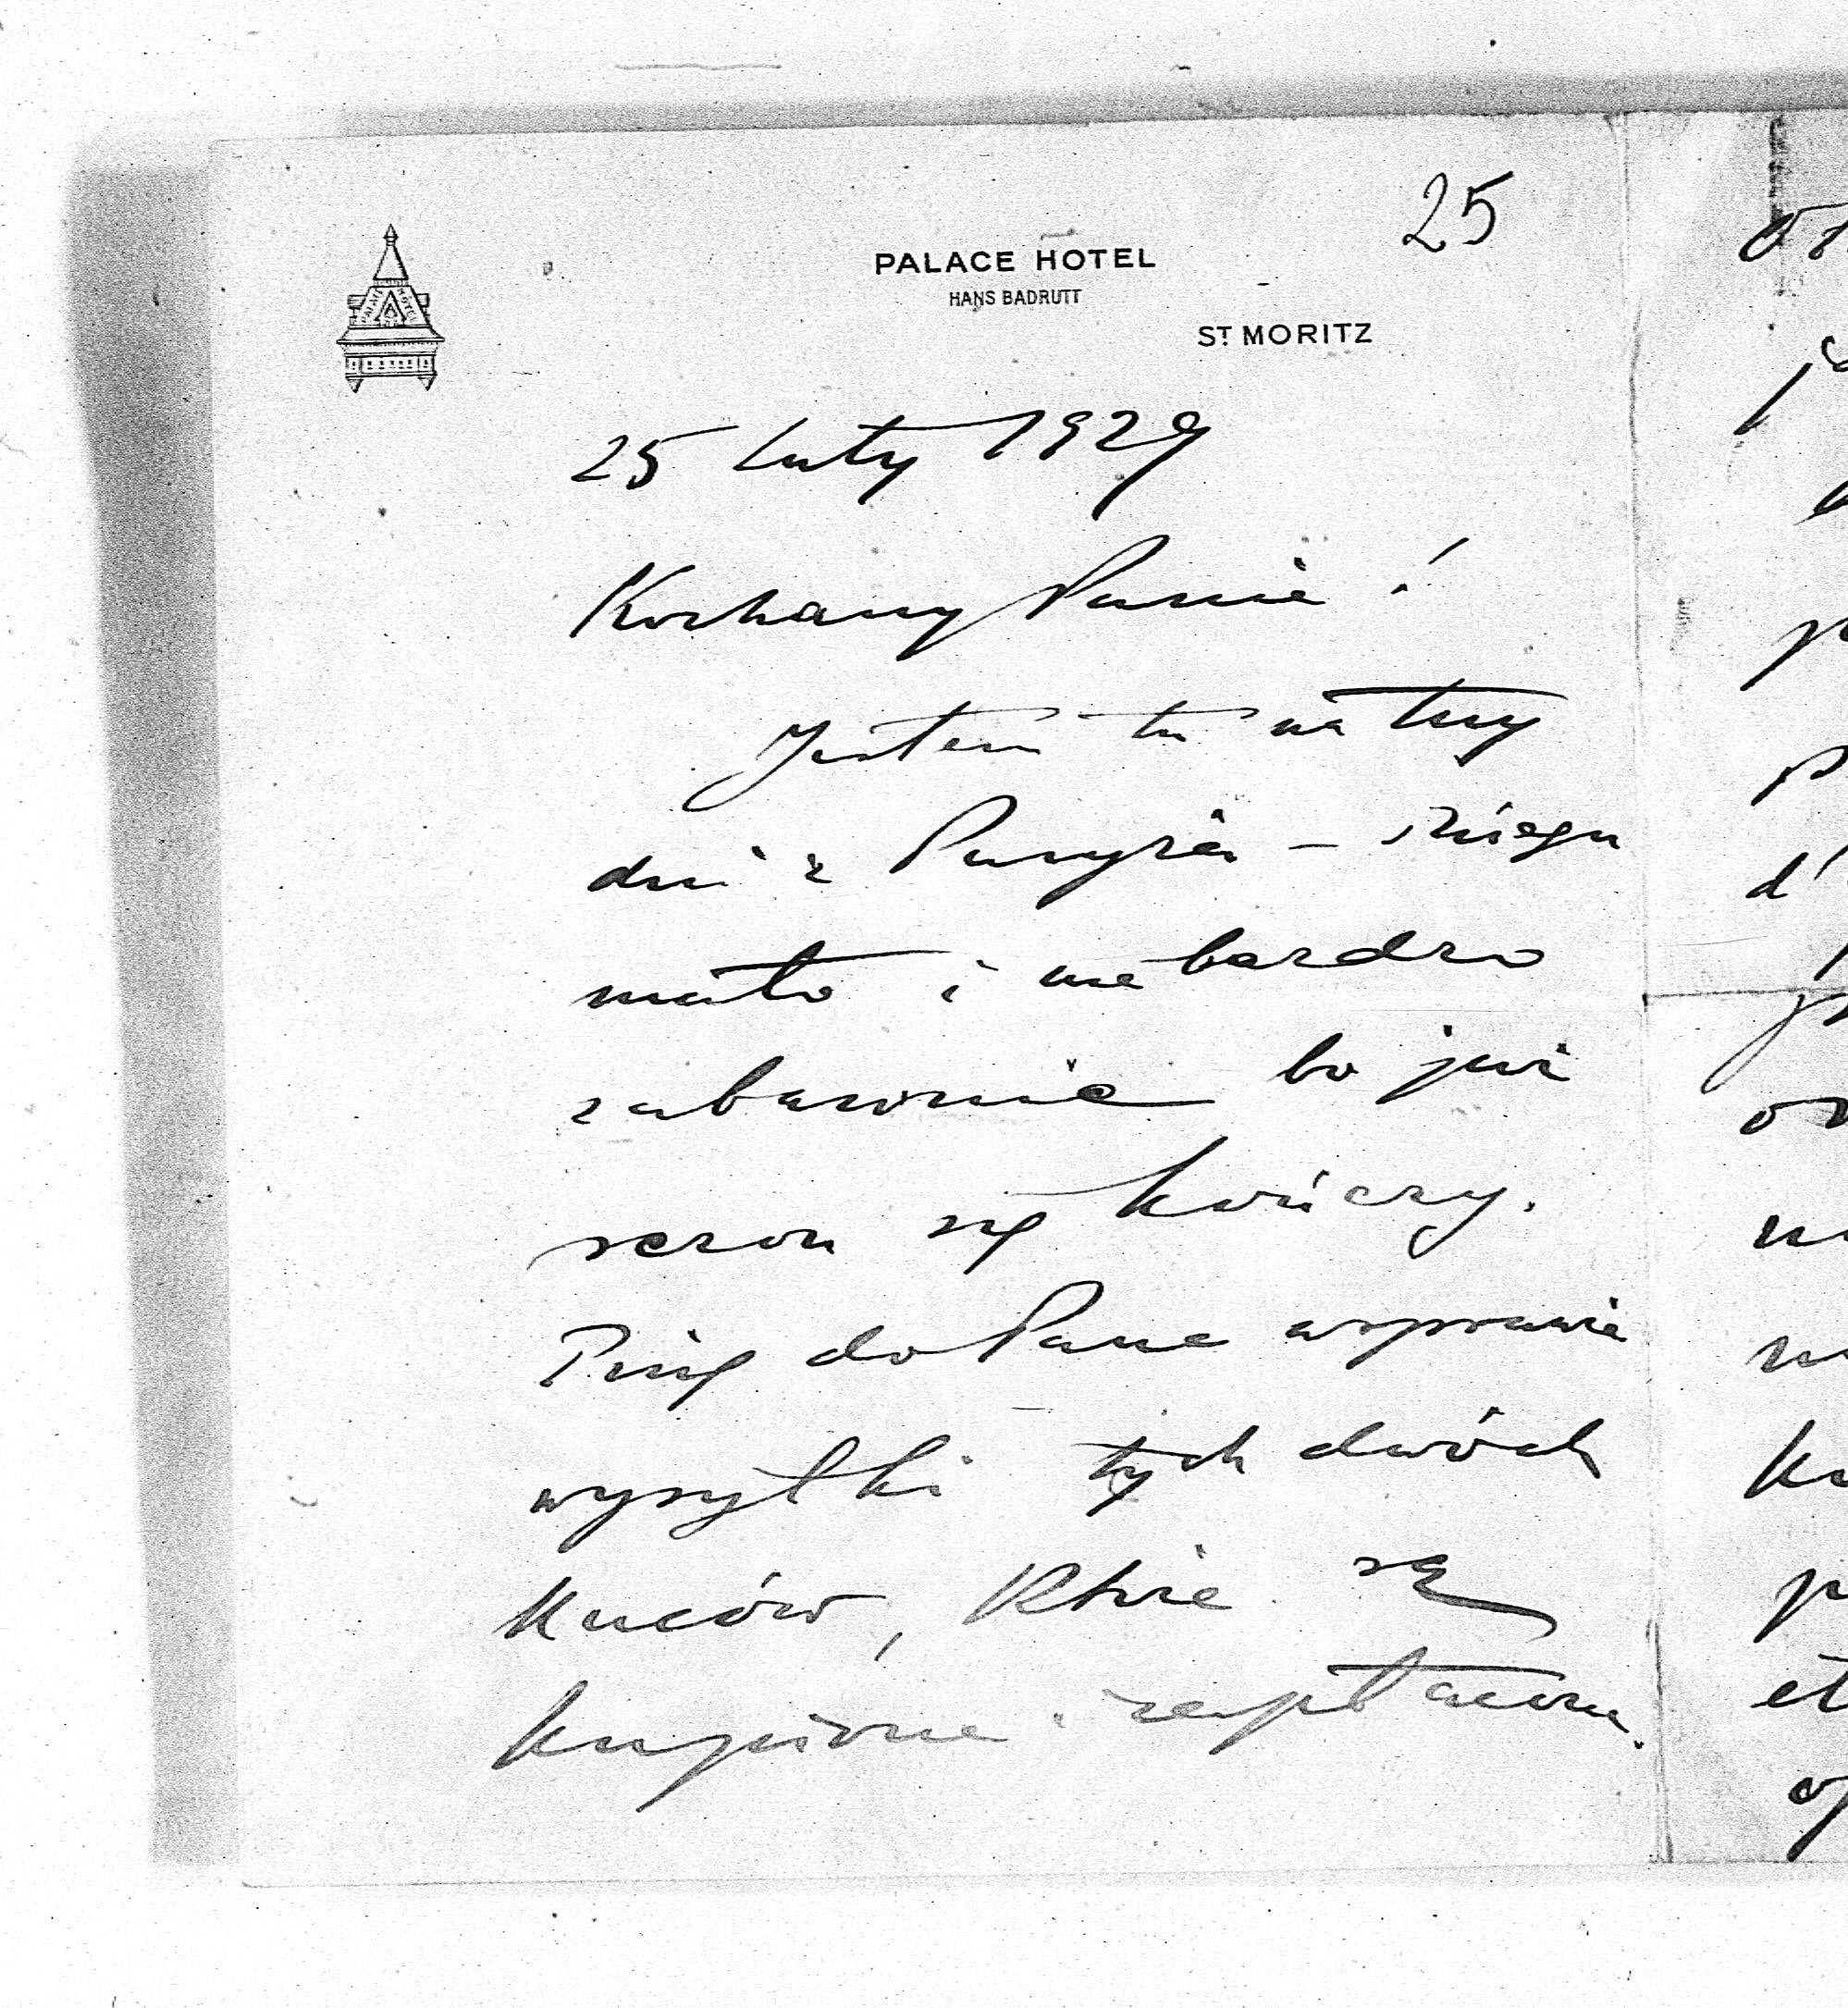 25
PALACE HOTEL
HANS BADRUTT
ST MORITZ
25 Luty 1929
Kochany Panie!
Jestem tu na trzy
dni z Paryża – śniegu
mało i nie bardzo
zabawnie bo już
sezon się kończy.
Piszę do Pana w sprawie
wysyłki tych dwóch
Kuców, które są
kupione i zapłacone.